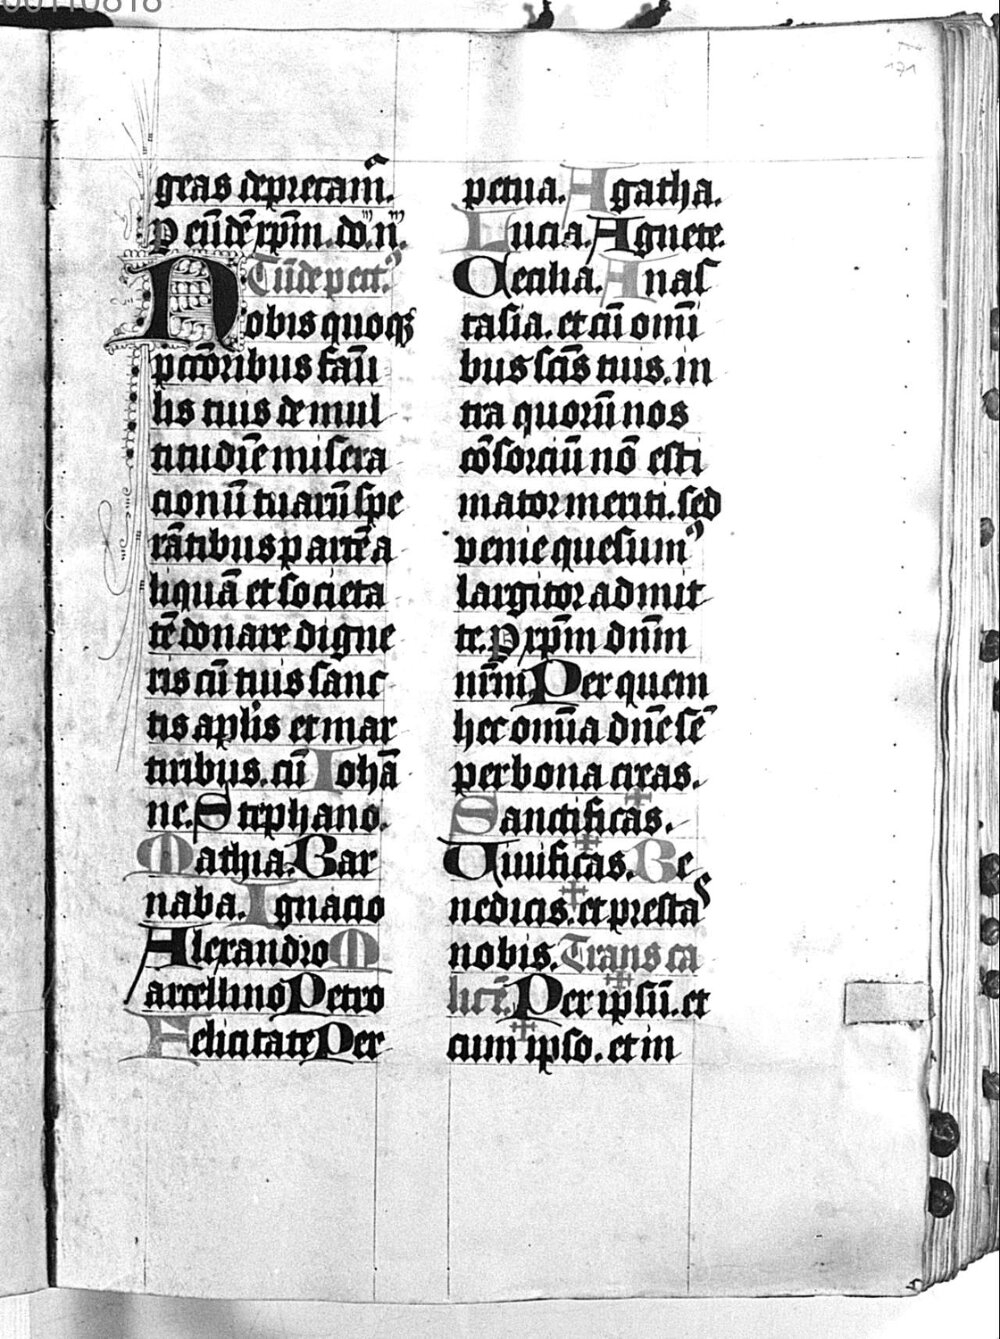 00110818
171
geas deprecam̄.
p eūdē xp̄m. do. n̄.
Tūde pect᷒
Nobis quoqꝫ
pctōribus famū
lis tuis de mul
titudīe misera
cionū tuarū spe
rātibus partē a
liquā et societa
tē donare digne
ris cū tuis sanc
tis apl̄is et mar
tiribus. cū Iohā
ne. Stephano.
Mathia. Bar
naba. Ignacio
Alexandro M
arcellino Petro
Felicitate Per
petua. Agatha.
Lucia. Agnete.
Cecilia. Anas
tasia. et cū omī
bus scīs tuis. in
tra quorū nos
cōsorciū nō esti
mator meriti. sed
venie quesumꝰ
largitor admit
te. P xp̄m dn̄m
nrm̄ Per quem
hec omīa dn̄e sē
per bona creas.
Sanctificas.
Viuificas. Be
nedicis. et presta
nobis. Trans ca
licē. Per ipsū. et
cum ipso. et in